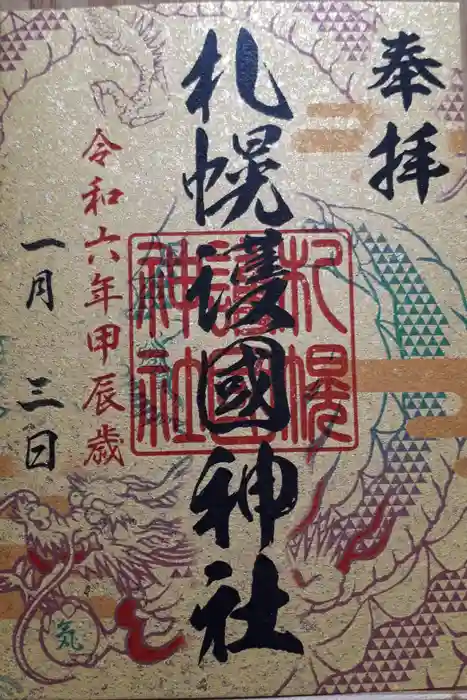 奉拝
札幌護國神社
札幌
護國
神社
令和六年甲辰歳
一月 三日
気